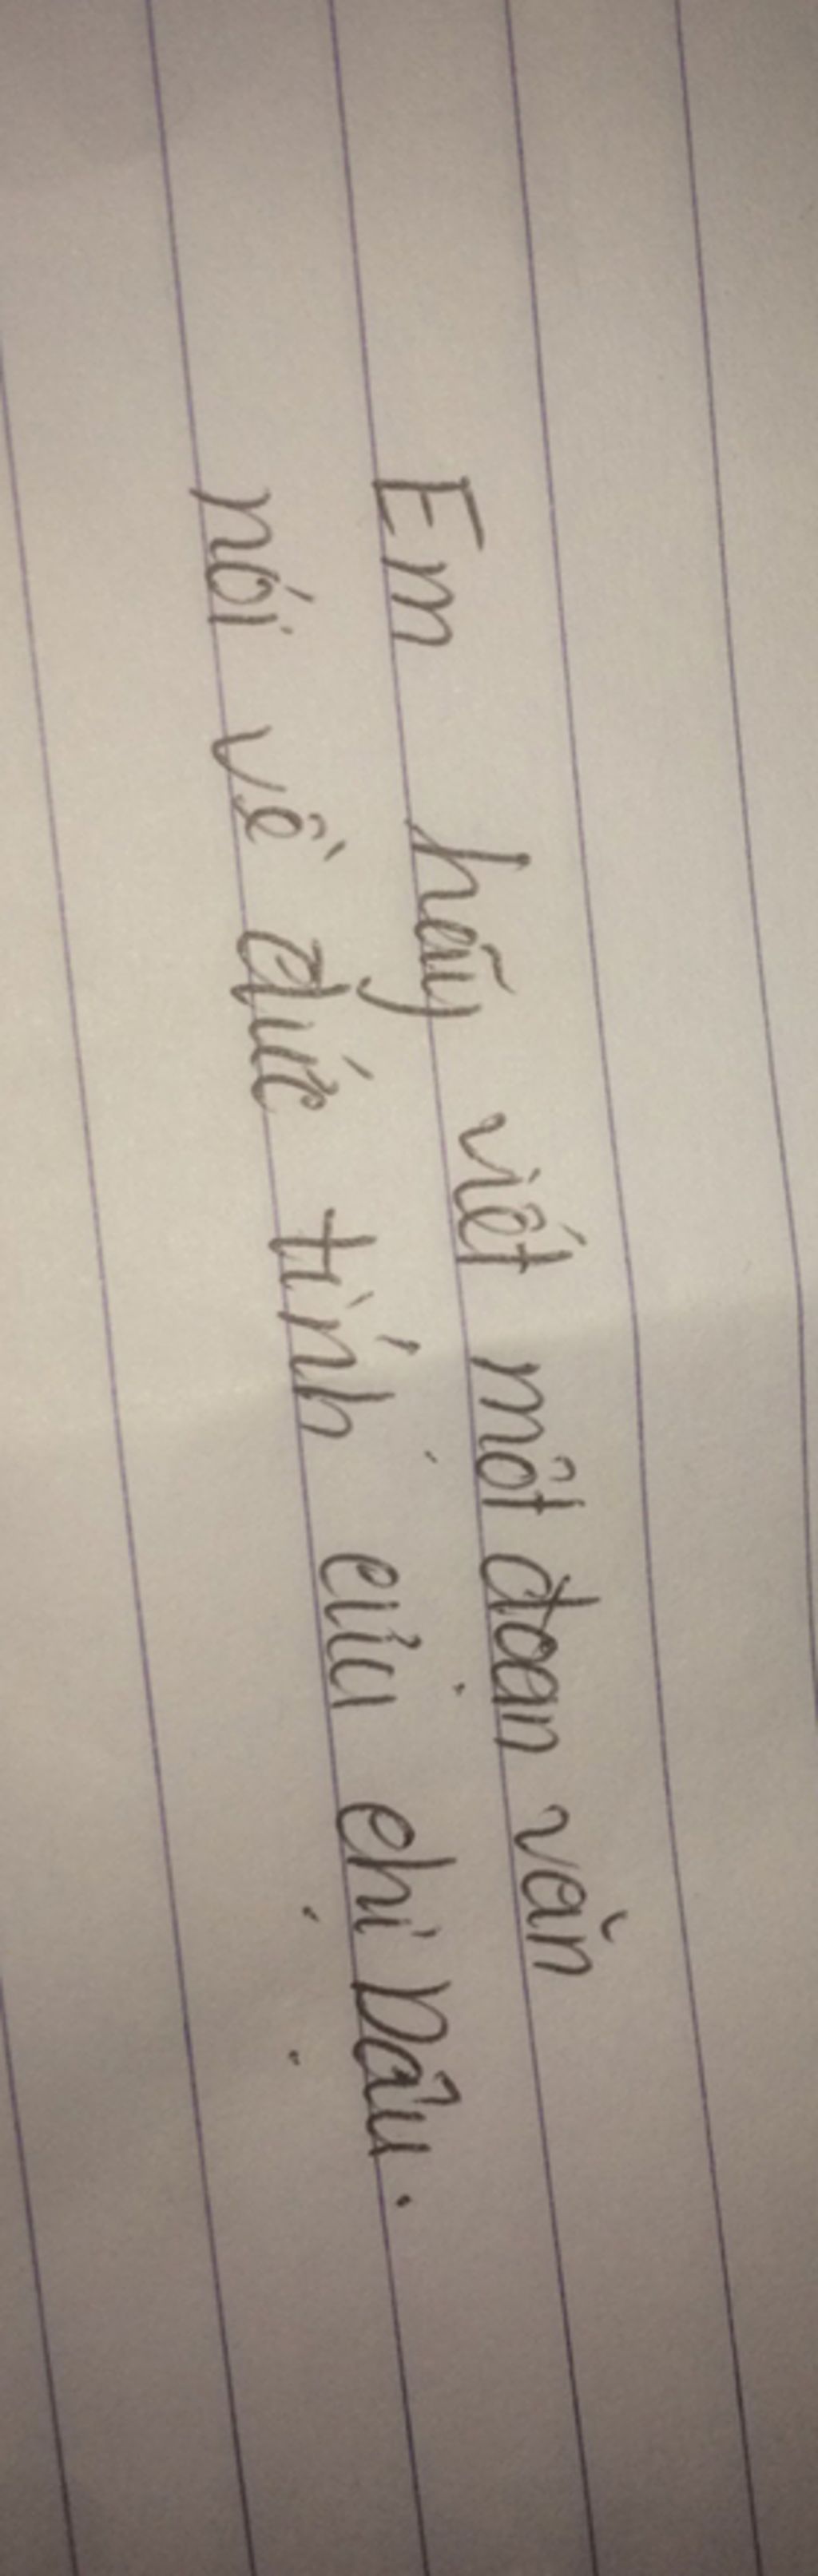 Em hãy viết một đoạn văn
nói về đức tính của chị Dậu.